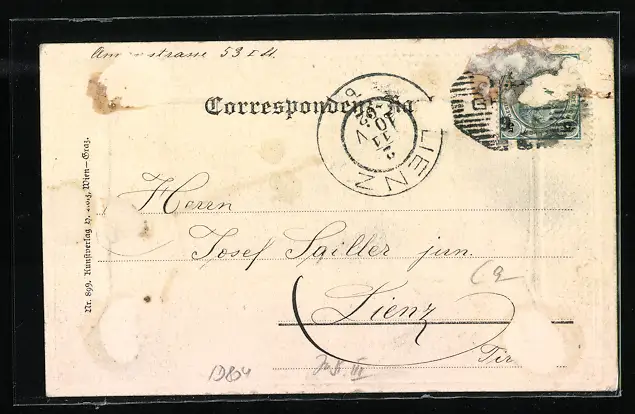 Annenstrasse 53 I St.
Correspondenz-Ka
LIENZ
Herrn
Josef Sailler jun.
Lienz
Tir
Nr. 899. Kunstverlag Wien—Graz.
19804